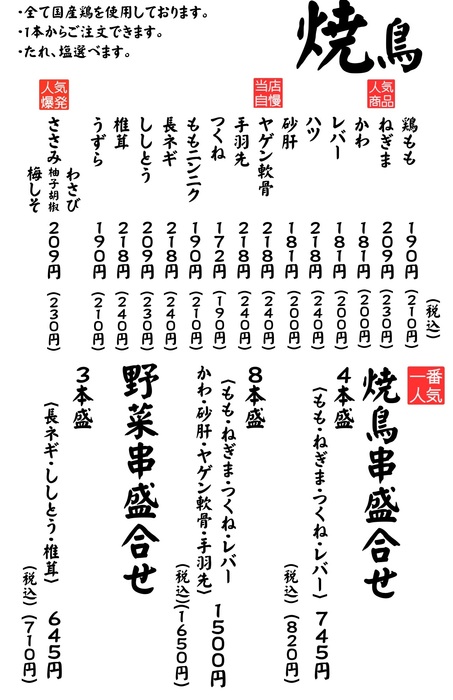 焼鳥
・全て国産鶏を使用しております。
・1本からご注文できます。
・たれ、塩選べます。
(税込)
鶏もも 190円 (210円)
人気商品
ねぎま 209円 (230円)
かわ 181円 (200円)
レバー 181円 (200円)
ハツ 218円 (240円)
砂肝 181円 (200円)
当店自慢
ヤゲン軟骨 218円 (240円)
手羽先 218円 (240円)
つくね 172円 (190円)
ももニンニク 190円 (210円)
長ネギ 218円 (240円)
ししとう 209円 (230円)
椎茸 218円 (240円)
うずら 190円 (210円)
人気爆発
ささみ わさび 柚子胡椒 梅しそ 209円 (230円)
一番人気
焼鳥串盛合せ
4本盛
(もも・ねぎま・つくね・レバー) 745円
(税込) (820円)
8本盛
(もも・ねぎま・つくね・レバー
かわ・砂肝・ヤゲン軟骨・手羽先) 1500円
(税込) (1650円)
野菜串盛合せ
3本盛
(長ネギ・ししとう・椎茸) 645円
(税込) (710円)